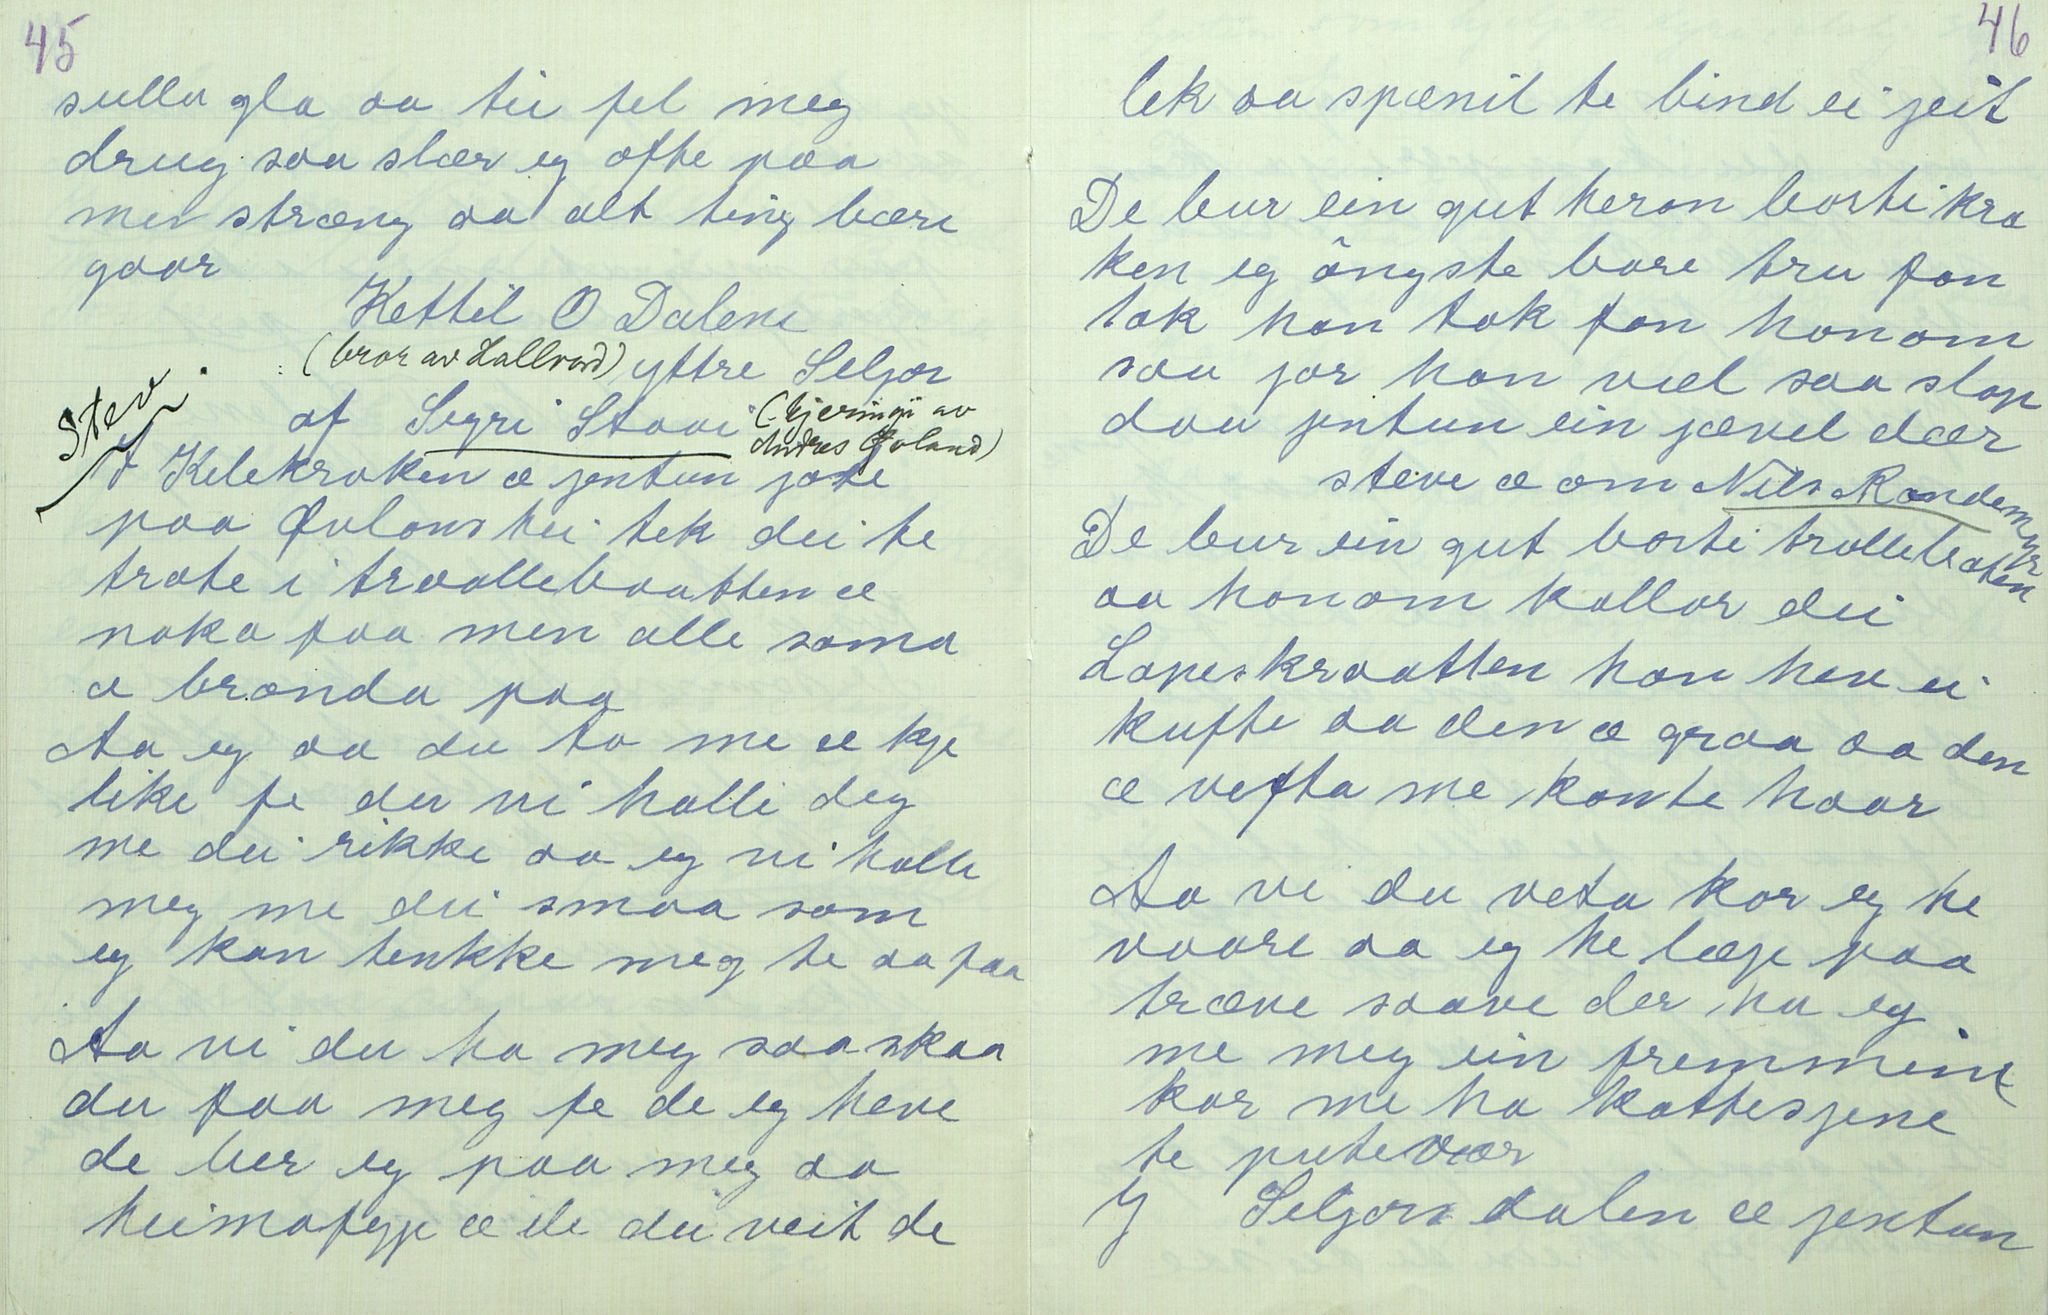 45
sullu gla aa tei fel meg
drug saa slær eg ofte paa
mei stræng aa alt ting bære
gaar
Kettil O Dalene
(bror av Hallvard) yttre Seljor
Stev.
af Sigri Staai (kjeringi av
Andres Øvland)
I Kelekroken æ jentun jote
paa Øvlans hei tek dei te
trate i traallebaatten æ
noko faa men alle sama
æ brænda paa
Aa eg aa du to me æ kje
like fe du vi halle deg
me dei rikke aa eg vi halle
meg me dei smaa som
eg kan tenkke meg te aa faa
Aa vi du ha meg saa skaa
du faa meg fe de eg heve
de ber eg paa meg aa
heimafyje æ de du veit de
46
lek aa spænil te bind ei jeit
De bur ein gut heran borti kra
ken eg ângste bare tru fan
tok han tok fan honom
saa jor han væl saa slap
daa jentun ein jævel dær
steve æ om Nils Randemyr
De bur ein gut borti trollebaten
aa honom kallar dei
Lapeskraatten han hev ei
kufte aa den æ graa aa den
æ vefta me konte haar
Aa vi du veta kor eg he
vaare aa eg he læje paa
træve saave der ha eg
me meg ein fremmint
kar me ha kattesjene
te putevaar
Y Seljors dalen æ jentun